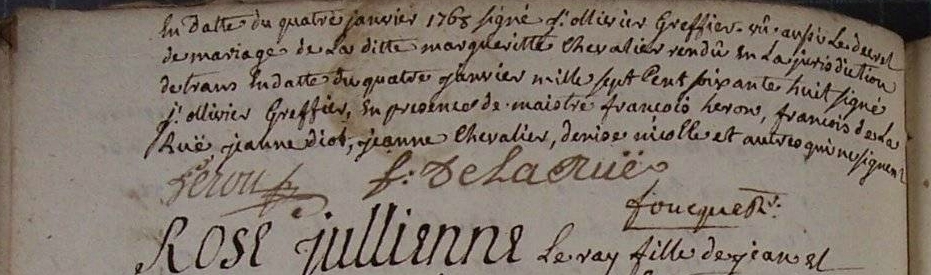 En datte du quatre janvier 1768 signé j. ollivier Greffier. vû aussi Le decret
de mariage de La ditte margueritte Chevalier rendû En La jurisdiction
de trans En datte du quatre janvier mille sept Cent soixante huit signé
j. ollivier Greffier, En presence de maistre francois heron, francois de La
Ruë, jeanne diot, jeanne Chevalier, denise nicolle et autres qui ne signent
heron f. De La Ruë
foucque Rr.
Rose jullienne Le ray fille de jean et